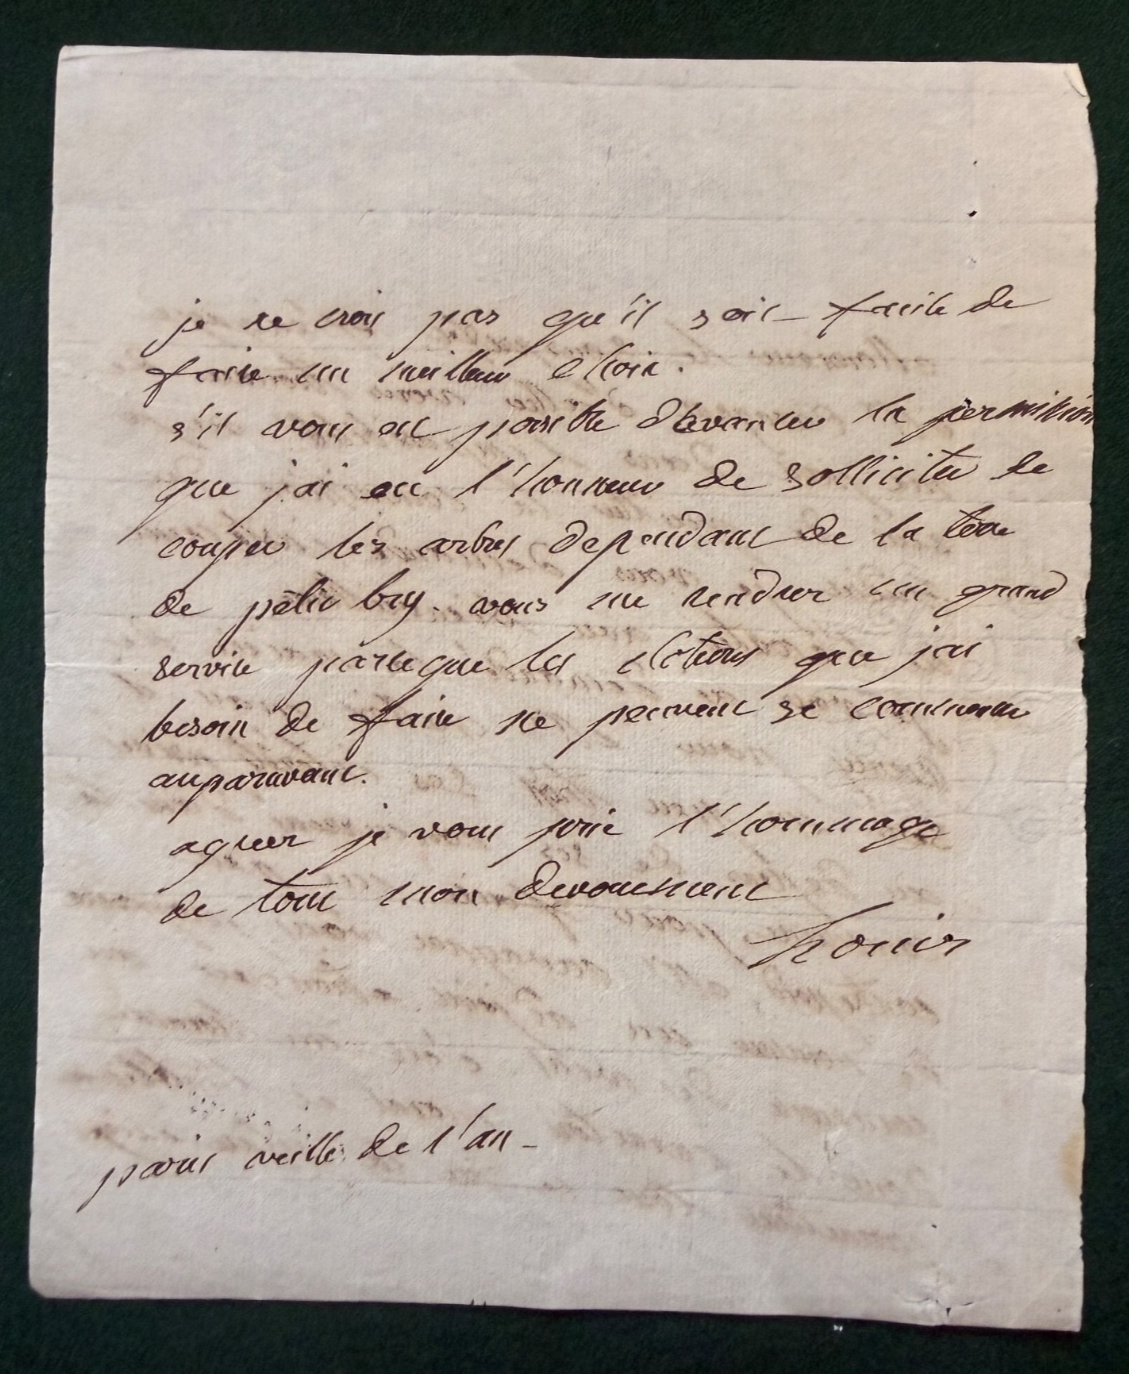 je ne crois pas qu'il soit facile de
faire un meilleur choix.
s'il vous est possible d'avancer la permission
que j'ai eu l'honneur de solliciter de
couper les arbres dependant de la terre
de petit bry. vous me rendrez un grand
service parceque les clotures que j'ai
besoin de faire ne peuvent se commencer
auparavant.
agreez je vous prie l'hommage
de tout mon devouement
paris veille de l'an